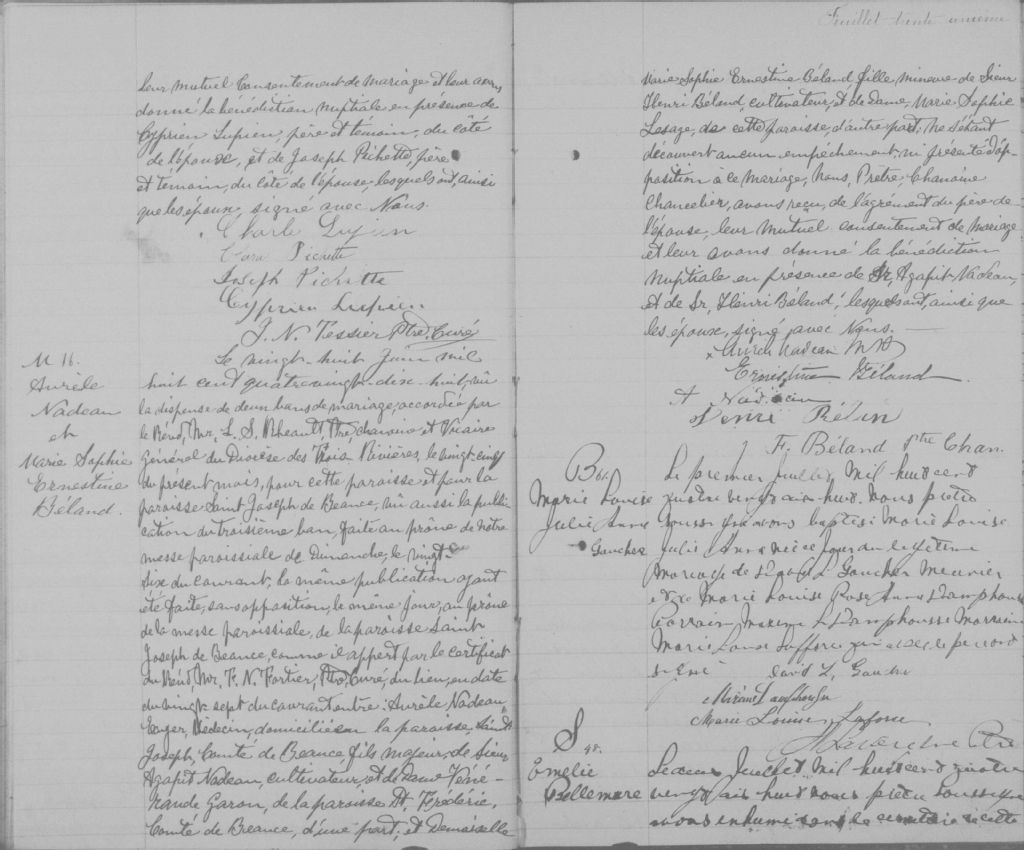 leur mutuel Consentement de mariage et leur avons
donné la bénédiction nuptiale en présence de
Cyprien Lupien, père et témoin, du côté
de l'époux, et de Joseph Pichette, père
et témoin, du côté de l'épouse, lesquels ont, ainsi
que les époux, signé avec Nous.
Charle Lupien
Clara Pichette
Joseph Pichette
Cyprien Lupien
J. N. Tessier Ptre. Curé
M 16.
Aurèle
Nadeau
et
Marie Sophie
Ernestine
Béland.
Le vingt huit Juin mil
huit cent quatrevingt-dix-huit, vu
la dispense de deux bans de mariage, accordée par
le Révd, Mr, L. S. Rheault, Ptre, chanoine et Vicaire
Général du Diocèse des Trois Rivières, le vingt cinq
du présent mois, pour cette paroisse et pour la
paroisse Saint Joseph de Beauce, vu aussi la publi-
cation du troisième ban, faite au prône de notre
messe paroissiale de Dimanche, le vingt
six du courant, la même publication ayant
été faite, sans opposition, le même jour, au prône
de la messe paroissiale, de la paroisse Saint
Joseph de Beauce, comme il appert par le certificat
du Révd, Mr, F. N. Fortier, Ptre, Curé, du lieu, en date
du vingt sept du courant entre: Aurèle Nadeau,
Ecuyer, Médecin, domicilié en la paroisse, Saint
Joseph, Comté de Beauce fils majeur, de Sieur
Agapit Nadeau, cultivateur, et de Dame Véné-
rande Garon, de la paroisse St. Frédéric,
Comté de Beauce, d'une part; et Demoiselle
Feuillet trente unième
Marie Sophie Ernestine Béland fille, mineure de Sieur
Henri Béland, cultivateur, et de Dame, Marie Sophie
Lesage, de cette paroisse, d'autre part: Ne s'étant
découvert aucun empêchement, ni présenté d'op-
position à ce mariage, Nous, Prêtre, Chanoine
Chancelier, avons reçu, de l'agrément du père de
l'épouse, leur mutuel consentement de mariage
et leur avons donné la bénédiction
nuptiale en présence de Sr, Agapit Nadeau,
et de Sr, Henri Béland, lesquels ont, ainsi que
les époux, signé avec Nous.
Aurèle Nadeau M D
Ernestine Béland
A Nadeau
Henri Bélan
F. Béland Ptre Chan.
B
Marie Louise
Julie Anna
Gaucher
Le premier Juillet Mil huit cent
quatre vingt dix huit, nous prêtre
soussigné avons baptisé Marie Louise
Julie Anna née ce jour du légitime
mariage de David L Gaucher Meunier
et de Marie Louise Rose Anna Damphousse
Parrain, Maxime L Damphousse Marraine
Marie Louise Lafforce
signé David L, Gaucher
Damphousse
Marie Louise Laforce
S 48.
Emélie
Bellemare
Le deux Juillet Mil huit cent quatre
vingt dix huit nous prêtre soussigné
avons inhumé dans le cimetière de cette